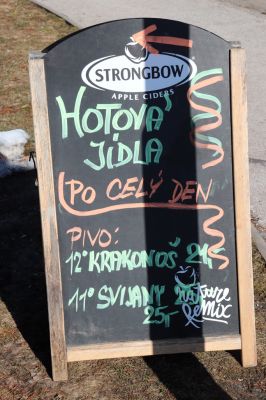 STRONGBOW
APPLE CIDERS
HOTOVÁ
JÍDLA
PO CELÝ DEN
PIVO:
12° KRAKONOŠ
11° SVIJANY
25,-
Remix